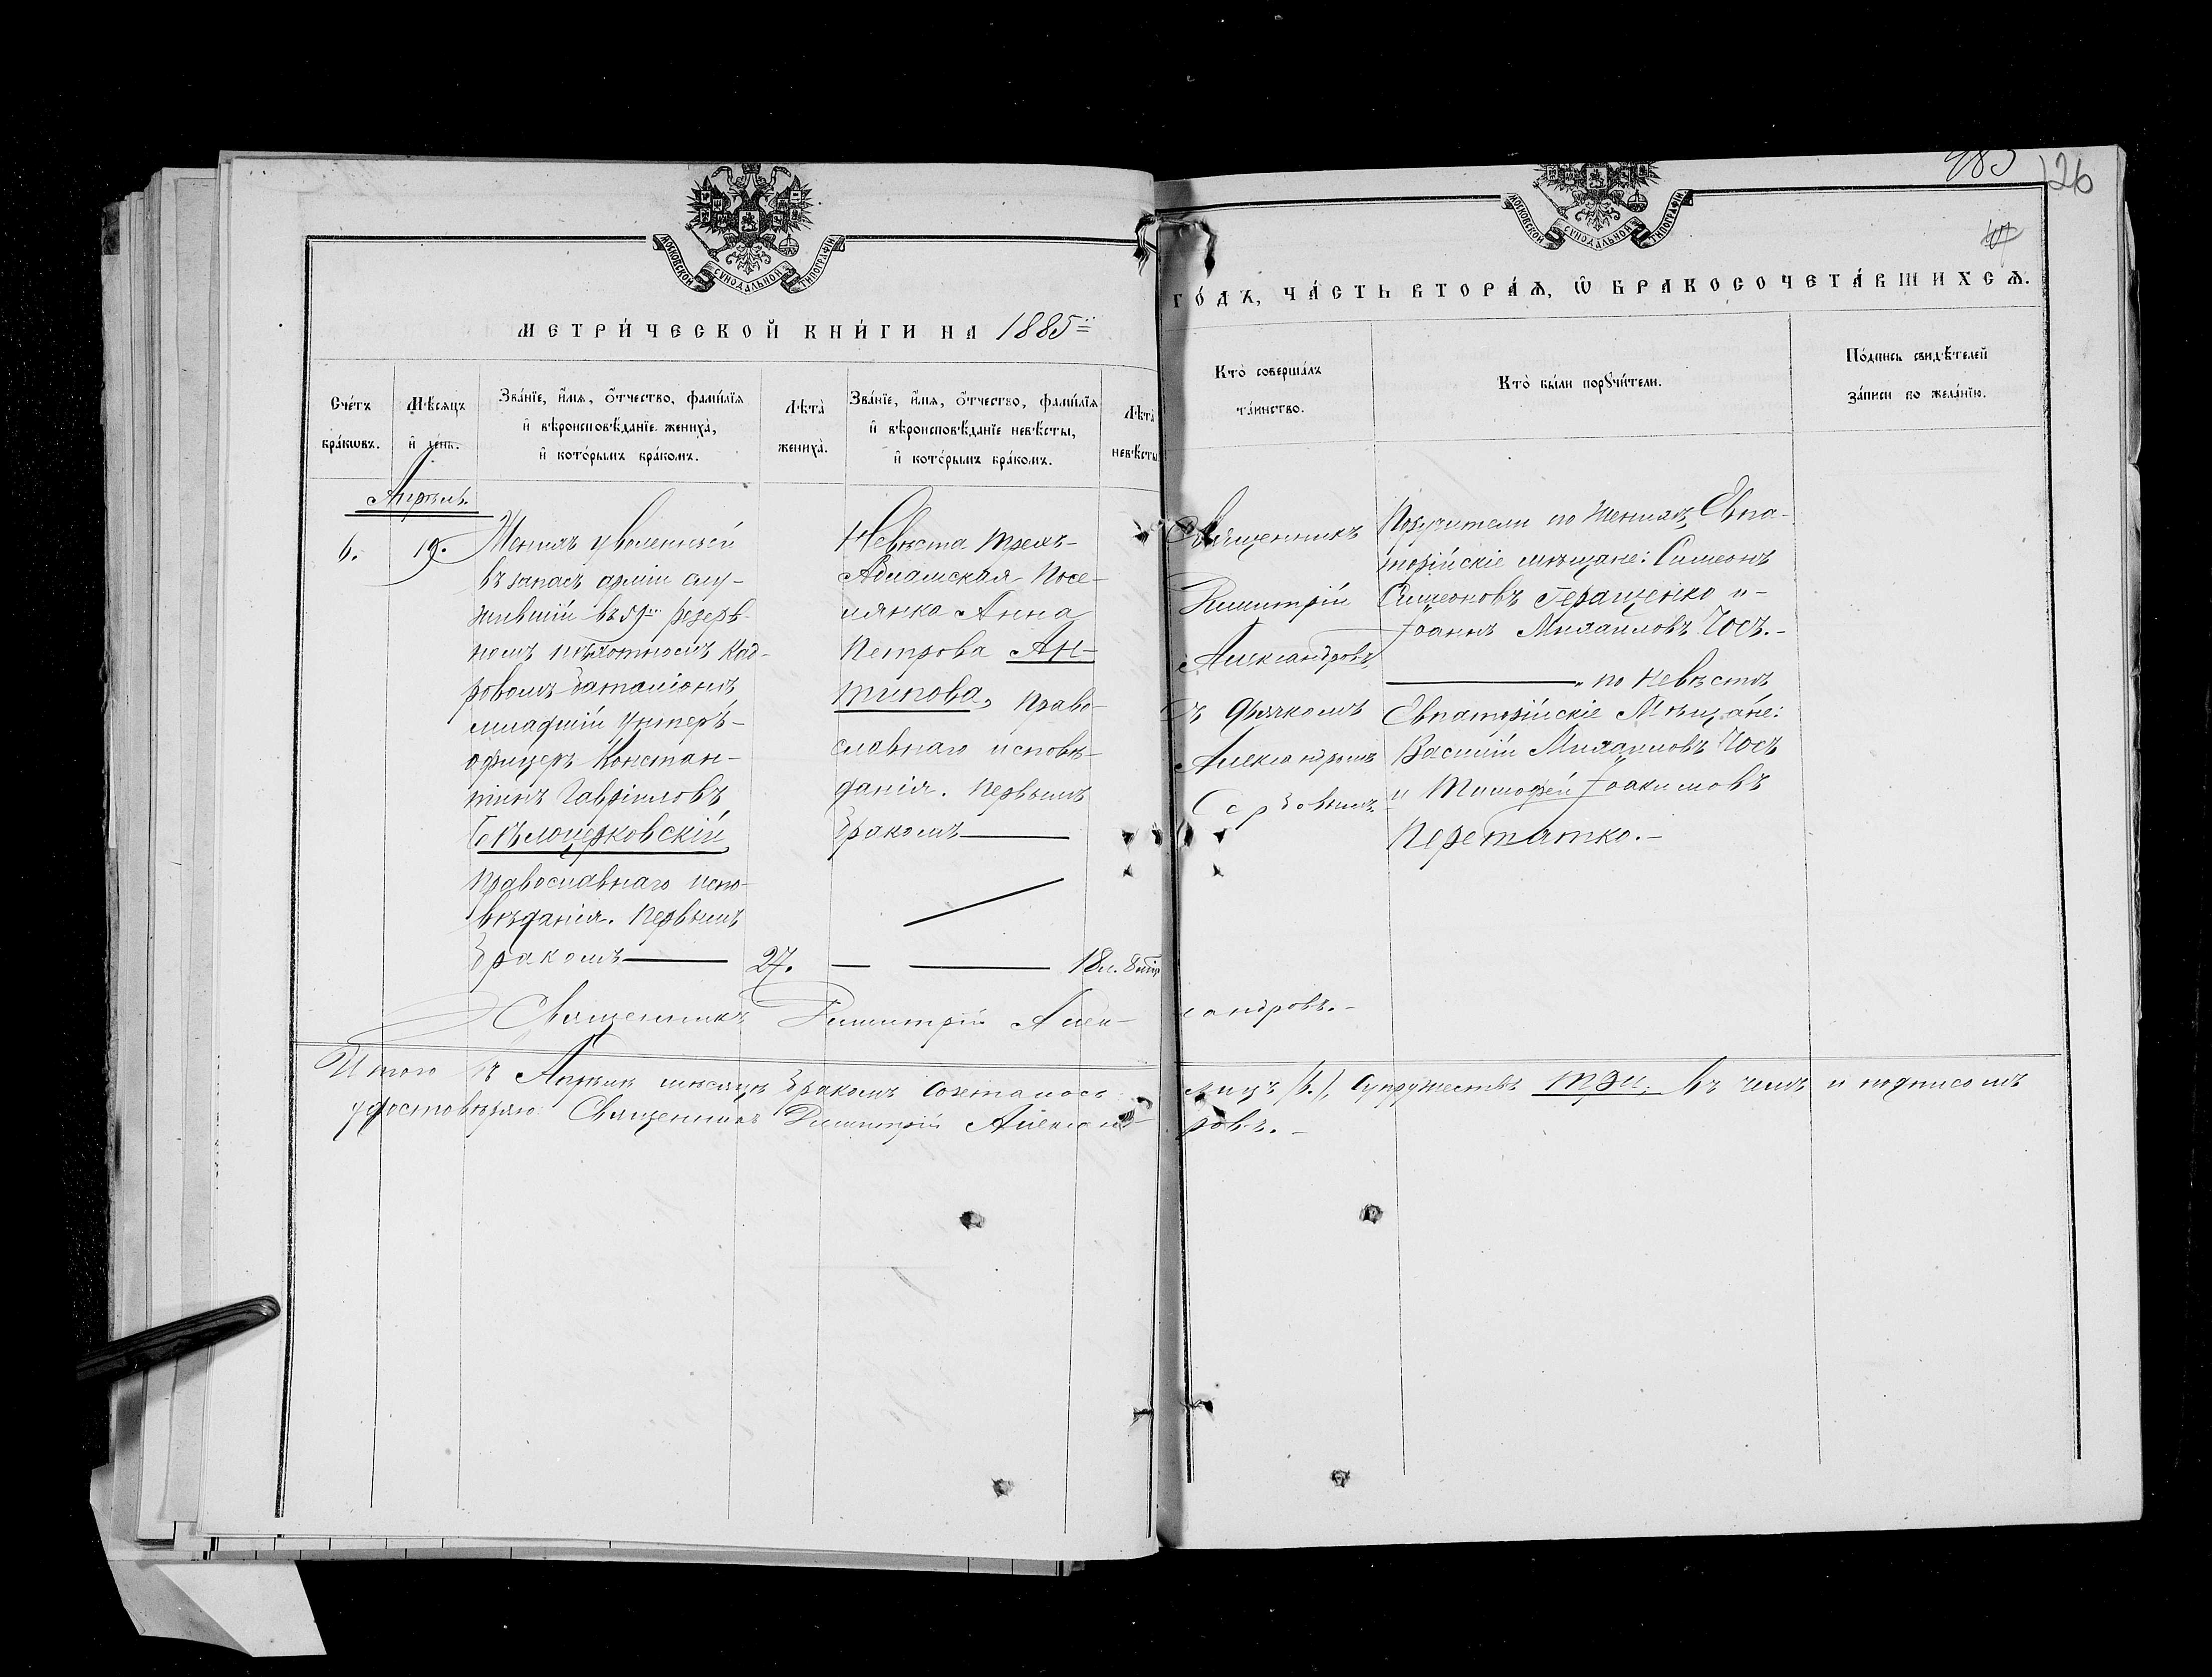 485
126
МОСКОВСКОЙ СѴНОДАЛЬНОЙ ТИПОГРАФІИ
МОСКОВСКОЙ СѴНОДАЛЬНОЙ ТИПОГРАФІИ
МЕТРИ́ЧЕСКОЙ КНИ́ГИ НА 1885
ГО́ДЪ, ЧА́СТЬ ВТОРА́Ѧ, Ѿ БРАКОСОЧЕТА́ВШИХСѦ.
Сче́тъ бра́кѡвъ.
Мѣ́сяцъ и де́нь.
Зва́нїе, и́мѧ, о́тчество, фами́лїѧ
и вѣроисповѣ́данїе жениха̀,
и кото́рымъ бра́комъ.
Лѣта̀
жениха̀.
Зва́нїе, и́мѧ, о́тчество, фами́лїѧ
и вѣроисповѣ́данїе невѣ́сты,
и кото́рымъ бра́комъ.
Лѣта̀
невѣ́сты
Кто̀ соверша́лъ
та́инство.
Кто̀ бы́ли порꙋчи́тели.
По́дпись свидѣ́телей
за́писи по жела́нїю.
Апрѣль.
6.
19.
Женихъ уволенный
въ запасъ арміи слу-
жившій въ 59мъ резерв-
номъ пѣхотномъ Кад-
ровомъ баталіонѣ
младшій унтеръ-
офицеръ Констан-
тинъ Гавріиловъ
Бѣлоцерковскій,
Православнаго испо-
вѣданія. Первымъ
бракомъ
27.
Невѣста Трехъ-
Абламская Посе-
лянка Анна
Петрова Ан-
типова, Право-
славнаго исповѣ-
данія. Первымъ
бракомъ
18 л. 8 мѣ
Священникъ
Димитрій
Александровъ
съ дьякомъ
Александромъ
Сербовымъ
Поручители по Женихѣ, Евпа-
торійскіе мѣщане: Симеонъ
Симеоновъ Геращенко и-
Іоаннъ Михаиловъ Носъ.-
" по Невѣстѣ
Евпаторійскіе Мѣщане:
Василій Михаиловъ Носъ
и Тимофей Іоакимовъ
Перетятко.-
Священникъ Димитрій Алек-
сандровъ.-
Итого въ Апрѣлѣ мѣсяцѣ бракомъ сочеталось
лицъ (6.), супружествъ три; въ чемъ и подписомъ
удостовѣряю: Священникъ Димитрій Александ-
ровъ.-